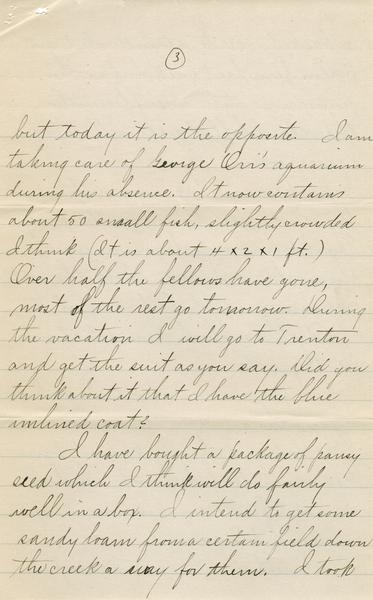 3
but today it is the opposite. I am
taking care of George Orr's aquarium
during his absence. It now contains
about 50 small fish, slightly crowded
I think (It is about 4 x 2 x 1 ft.)
Over half the fellows have gone,
most of the rest go tomorrow. During
the vacation I will go to Trenton
and get the suit as you say. Did you
think about it that I have the blue
unlined coat?
I have bought a package of pansy
seed which I think will do fairly
well in a box. I intend to get some
sandy loam from a certain field down
the creek a way for them. I took